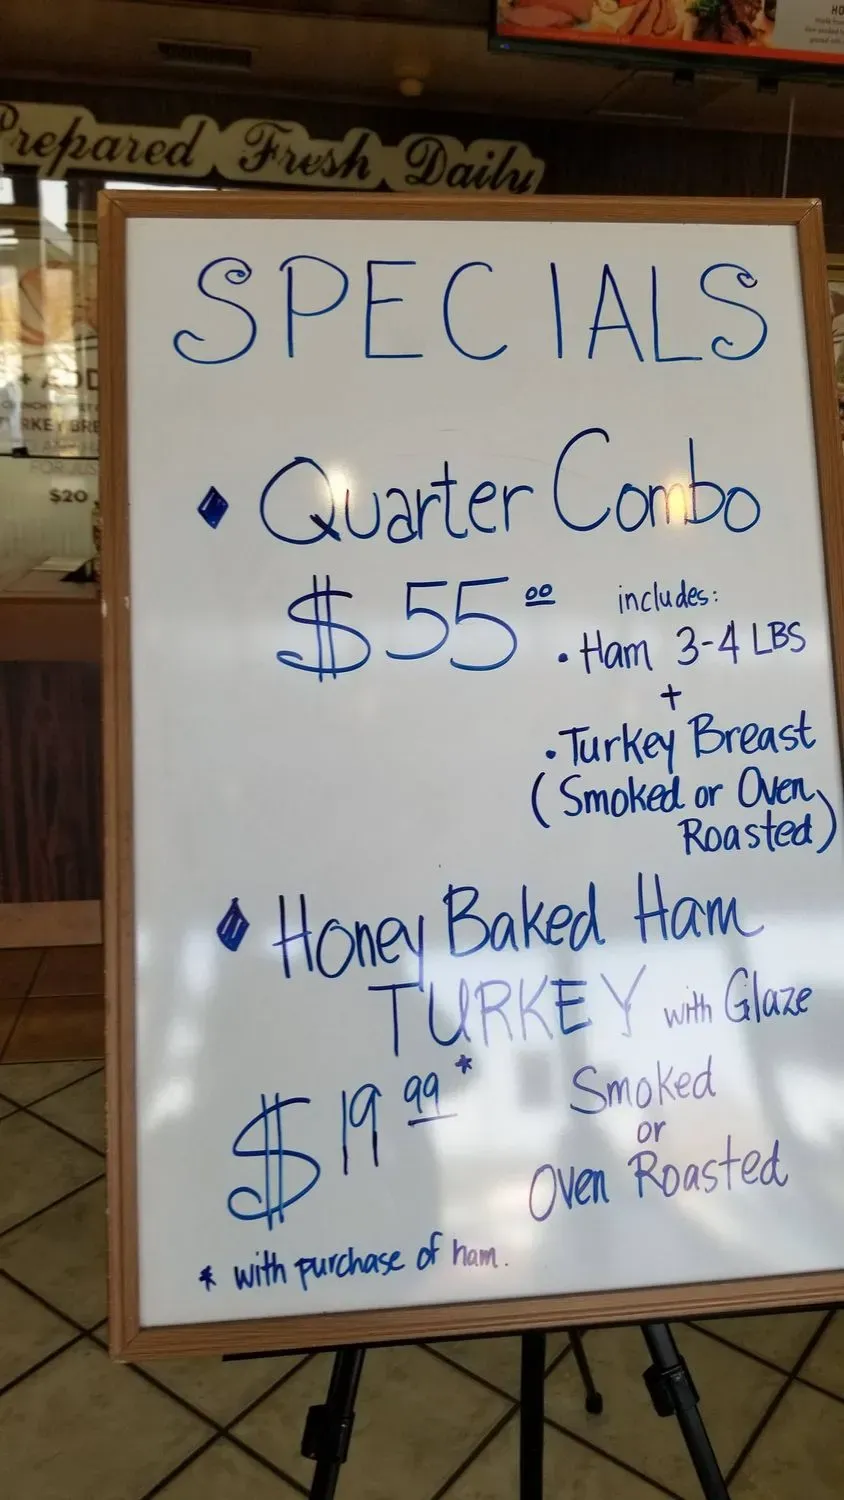 Prepared Fresh Daily
HO
SPECIALS
Quarter Combo
$55.00 includes:
• Ham 3-4 LBS
+
• Turkey Breast
(Smoked or Oven
Roasted)
Honey Baked Ham
TURKEY with Glaze
$19 99* Smoked
or
Oven Roasted
* with purchase of ham.
+ ADD
RKEY BRE
FOR JUS
$20